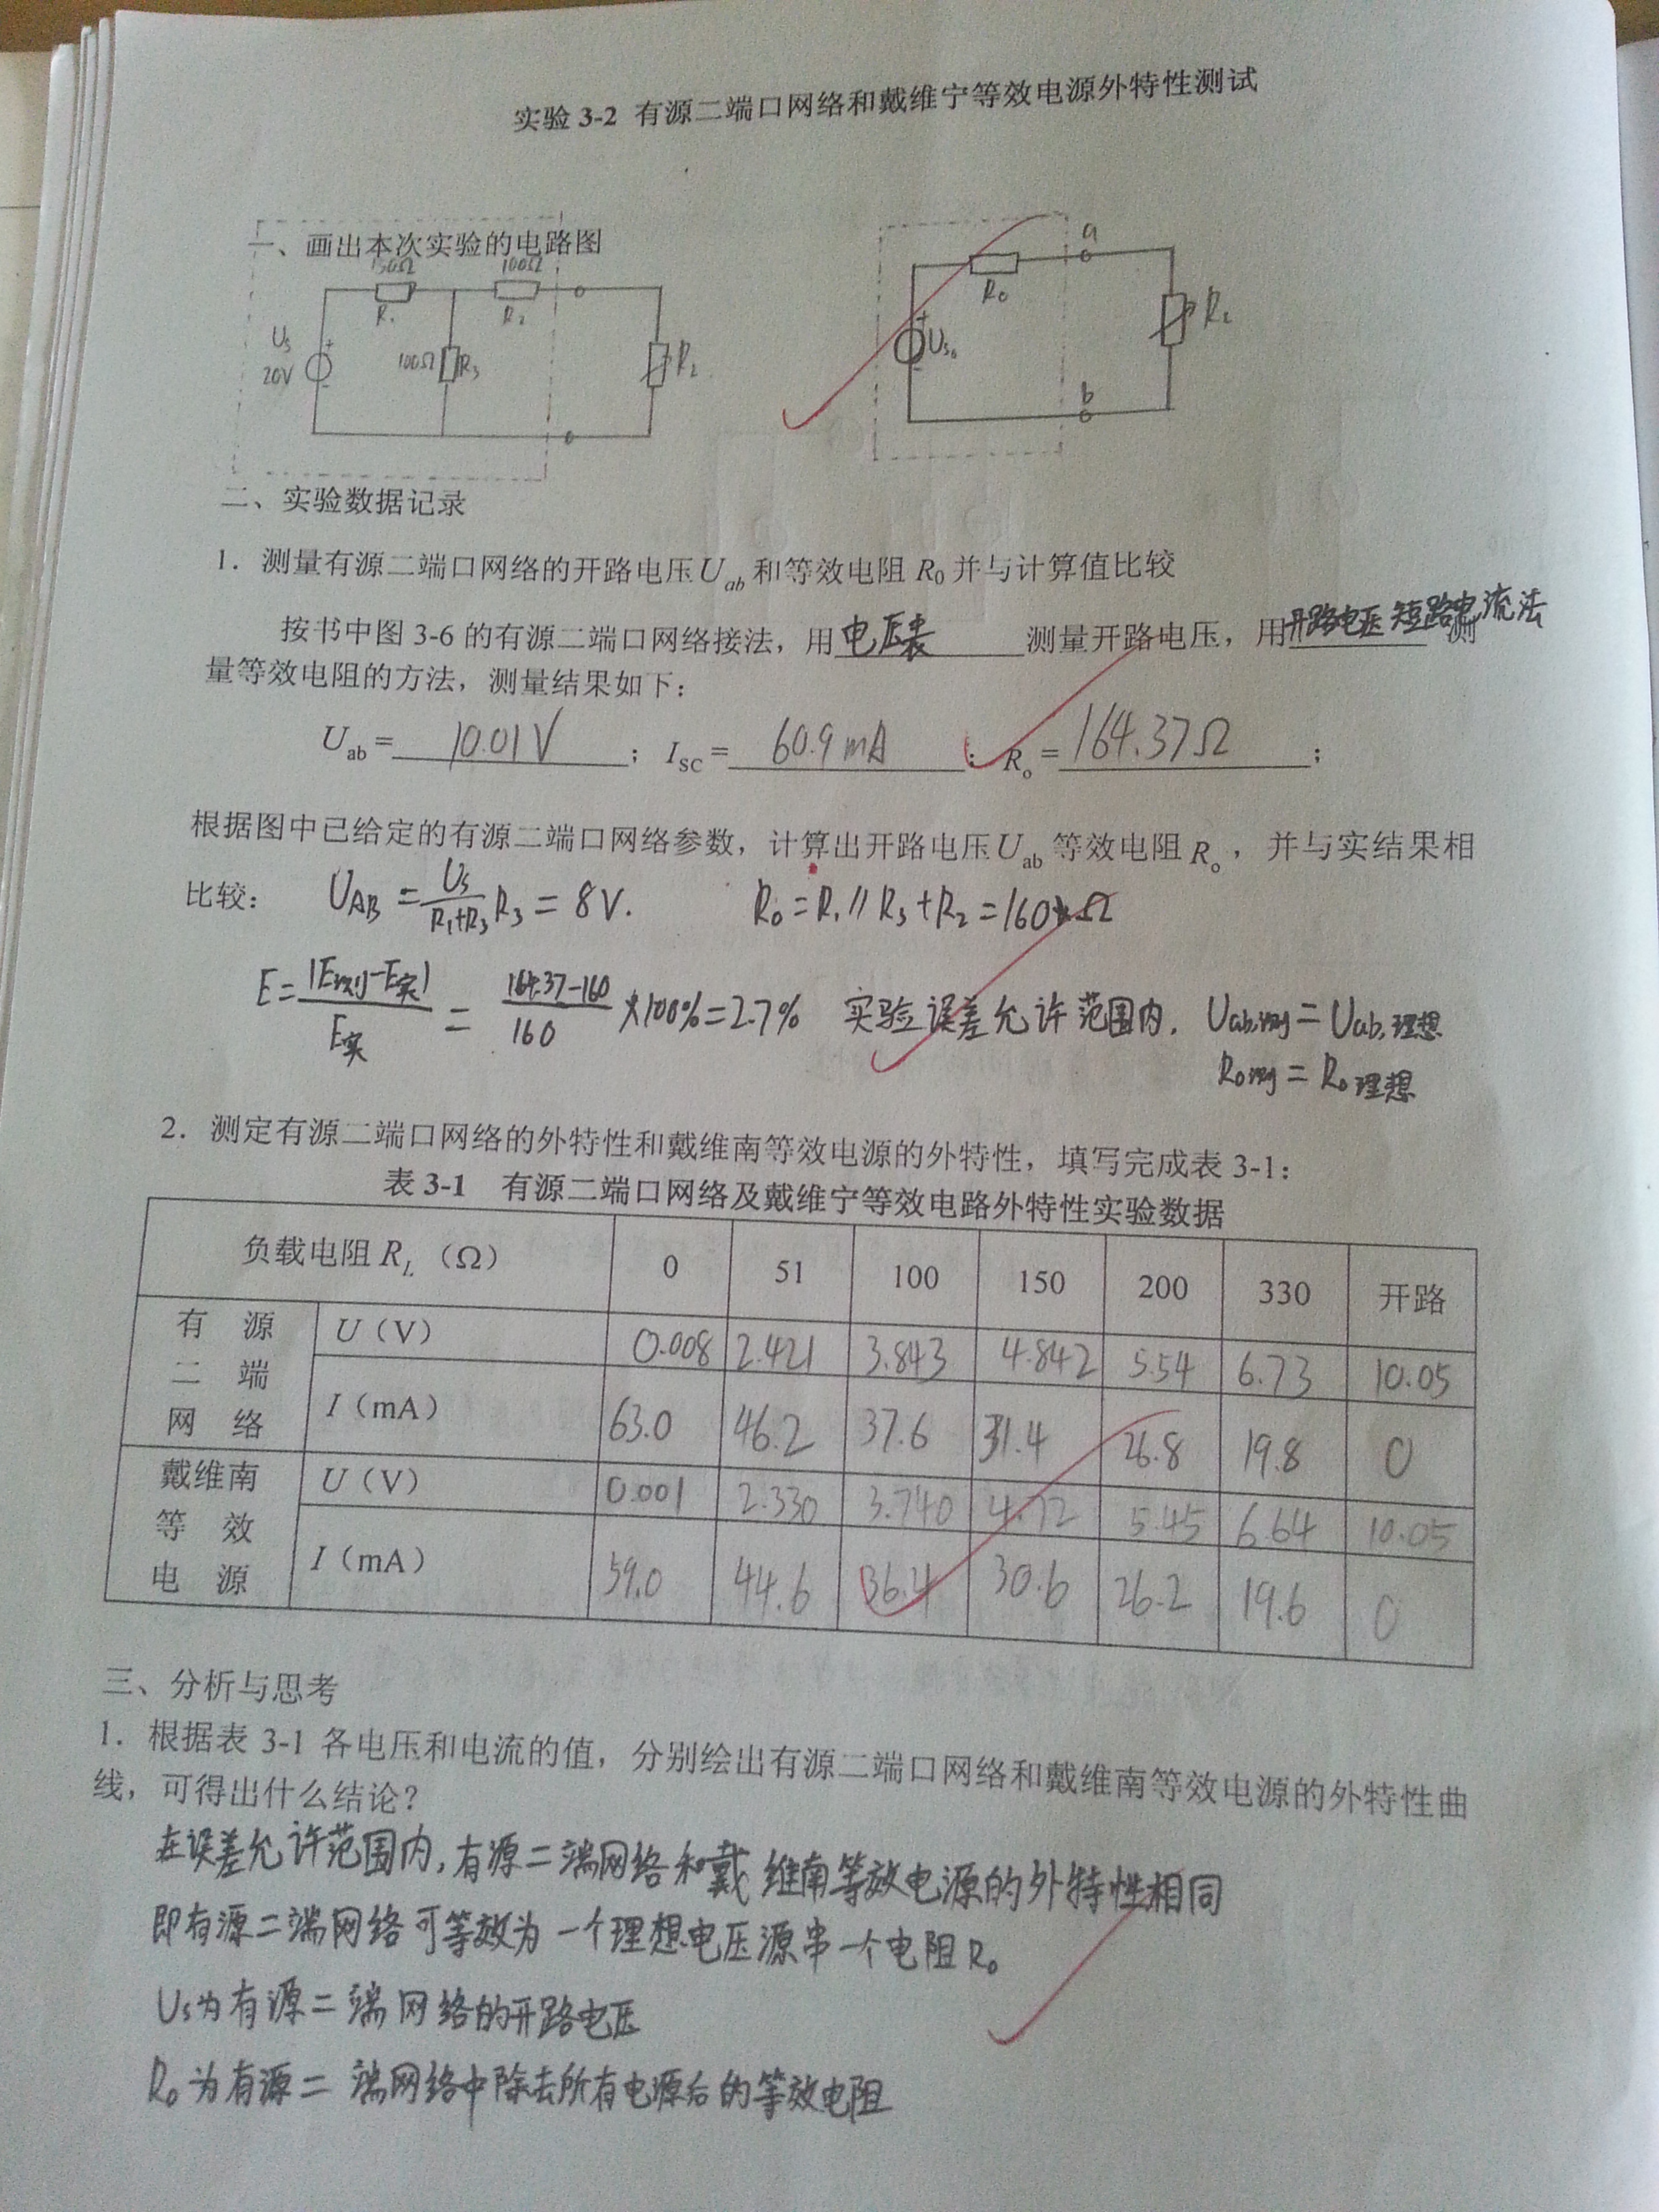 实验 3-2 有源二端口网络和戴维宁等效电源外特性测试
一、画出本次实验的电路图
150Ω 100Ω
R₁ R₂
Us
20V
100Ω R₃
R₂
a
R₀
Us₀
R₂
b
二、实验数据记录
1．测量有源二端口网络的开路电压Uab和等效电阻 R0 并与计算值比较
按书中图 3-6 的有源二端口网络接法，用电压表测量开路电压，用开路电压短路电流法测
量等效电阻的方法，测量结果如下：
Uab = 10.01V ； ISC = 60.9mA ； Ro = 164.37Ω ；
根据图中已给定的有源二端口网络参数，计算出开路电压Uab 等效电阻 Ro ，并与实结果相
比较： UAB = Us/(R₁+R₃) R₃ = 8V. R₀ = R₁ // R₃ + R₂ = 160Ω
E = |E测-E实|/E实 = (164.37-160)/160 ×100% = 2.7% 实验误差允许范围内. Uab,测 = Uab,理想
R₀测 = R₀理想
2．测定有源二端口网络的外特性和戴维南等效电源的外特性，填写完成表 3-1：
表 3-1 有源二端口网络及戴维宁等效电路外特性实验数据
负载电阻 RL（Ω） 0 51 100 150 200 330 开路
有源二端网络 U（V） 0.008 2.421 3.843 4.842 5.54 6.73 10.05
I（mA） 63.0 46.2 37.6 31.4 26.8 19.8 0
戴维南等效电源 U（V） 0.001 2.330 3.740 4.72 5.45 6.64 10.05
I（mA） 59.0 44.6 36.4 30.6 26.2 19.6 0
三、分析与思考
1．根据表 3-1 各电压和电流的值，分别绘出有源二端口网络和戴维南等效电源的外特性曲
线，可得出什么结论？
在误差允许范围内，有源二端网络和戴维南等效电源的外特性相同
即有源二端网络可等效为一个理想电压源串一个电阻R₀
Us为有源二端网络的开路电压
R₀为有源二端网络中除去所有电源后的等效电阻